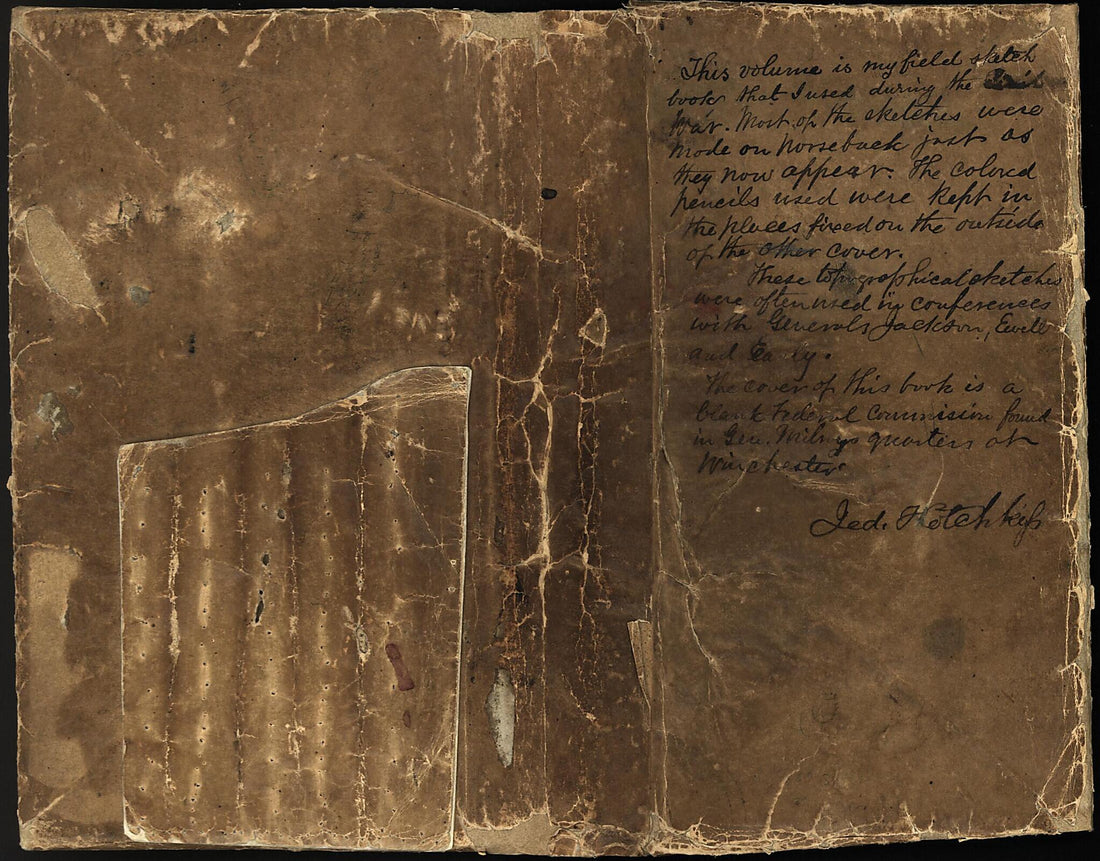 This volume is my field sketch
book that I used during the Civil
War. Most of the sketches were
made on horseback just as
they now appear. The colored
pencils used were kept in
the places fixed on the outside
of the other cover.
These topographical sketches
were often used in conferences
with Generals Jackson, Ewell
and Early.
The cover of this book is a
blank Federal Commission found
in Gen. Milroy's quarters at
Winchester.
Jed. Hotchkiss